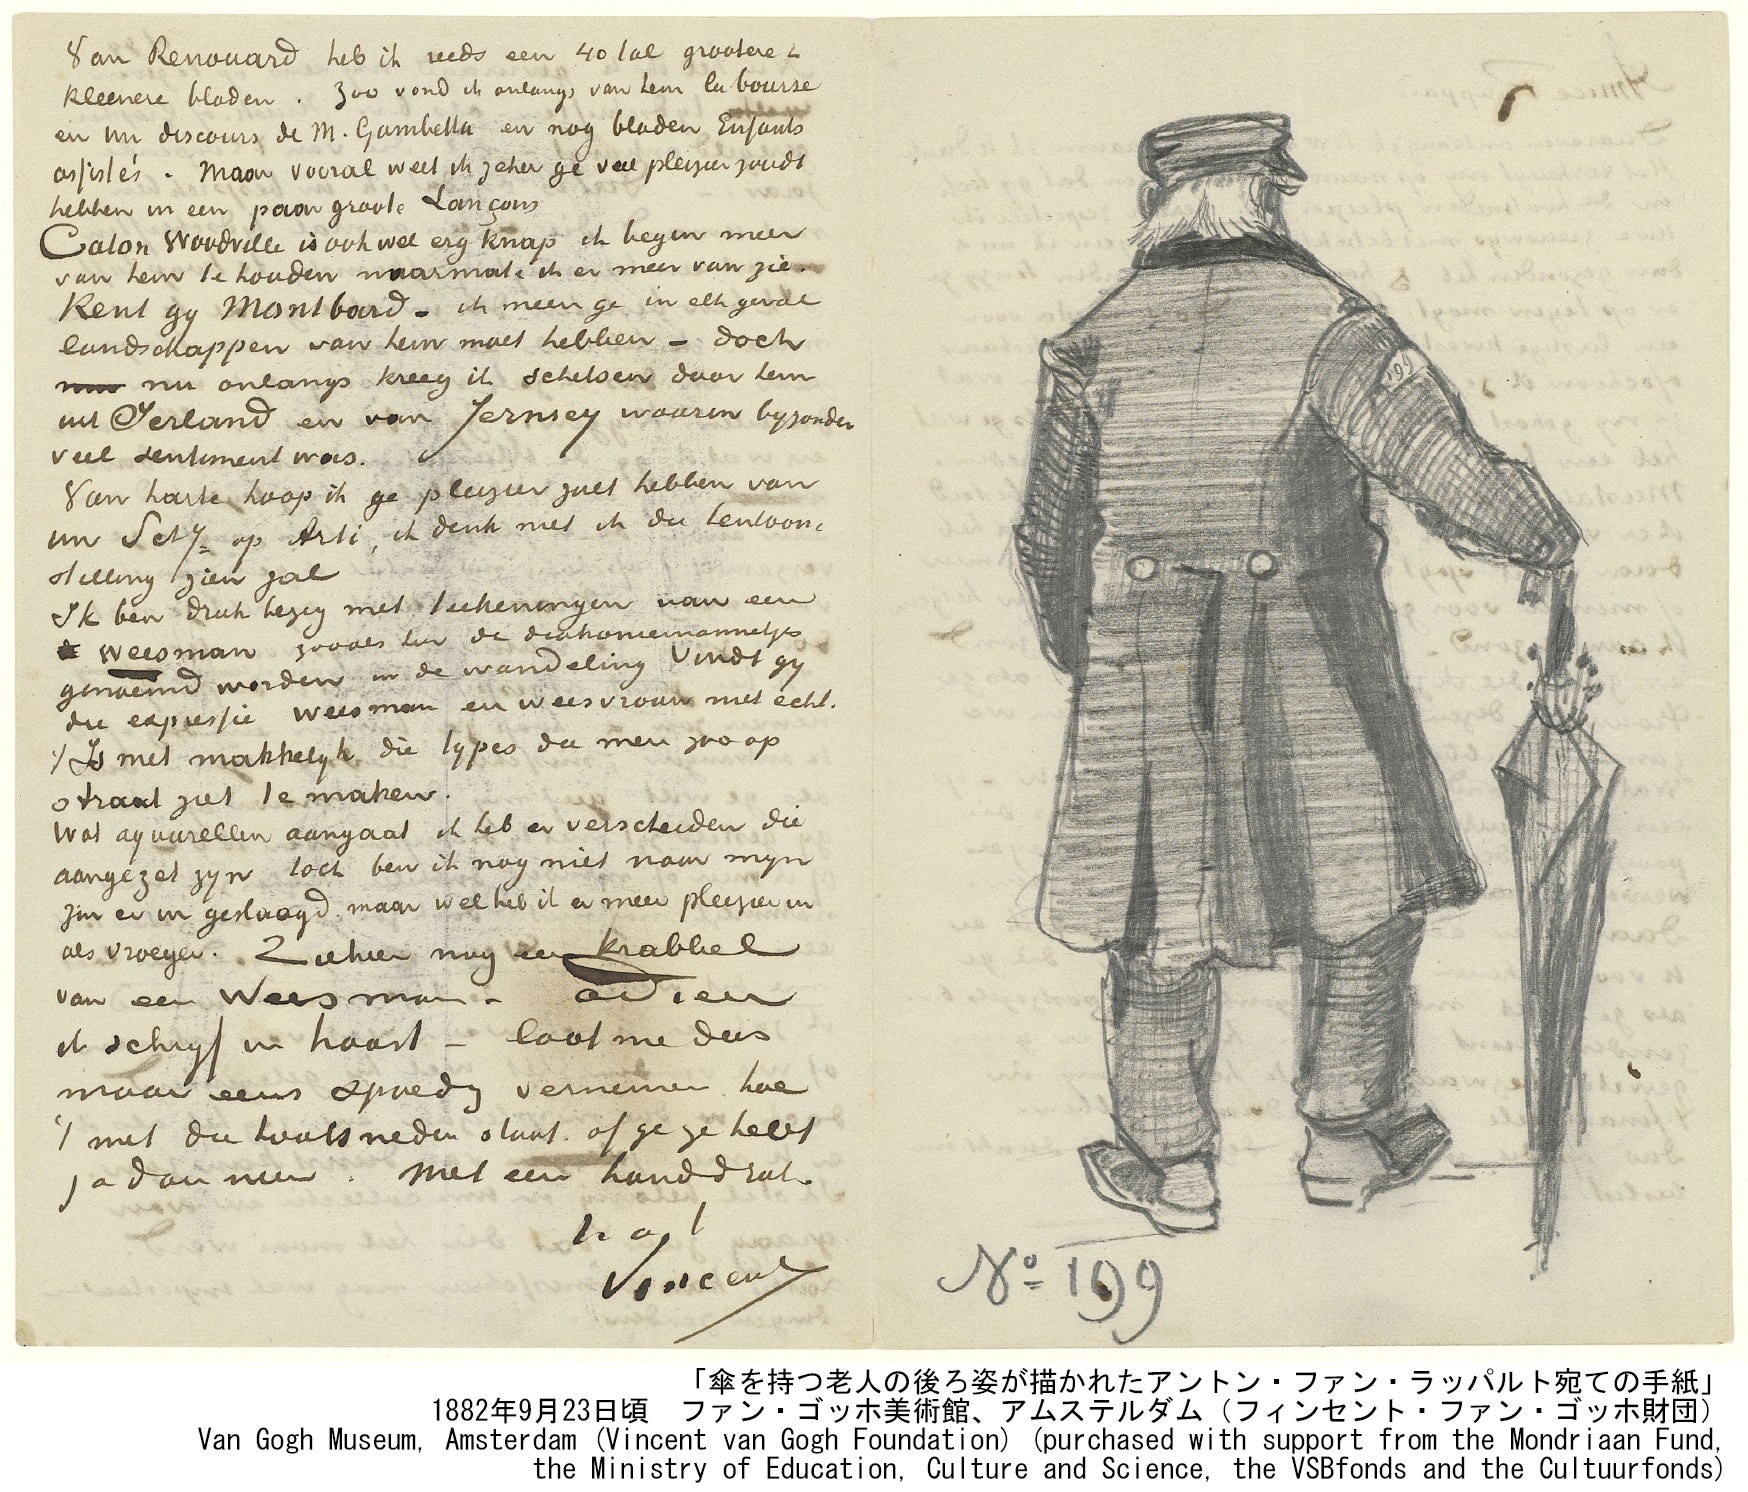 Van Renouard heb ik reeds een 40 tal grootere &
kleenere bladen. Zoo vond ik onlangs van hem la bourse
en un discours de M. Gambetta en nog bladen Enfants
assistés. Maar vooral weet ik zeker ge veel pleizier zoudt
hebben in een paar groote Lançons
Caton Woodville is ook wel erg knap ik begin meer
van hem te houden naarmate ik er meer van zie.
Kent gy Montbard – ik meen ge in elk geval
landschappen van hem moet hebben – doch
nu onlangs kreeg ik schetsen door hem
uit Ierland en van Jernsey waarin byzonder
veel sentiment was.
Van harte hoop ik ge pleizier zult hebben van
uw op Arti, ik denk niet ik die tentoon-
stelling zien zal
Ik ben druk bezig met teekeningen van een
weesman zooals hier de diakoniemannetjes
genoemd worden in de wandeling Vindt gy
die expressie weesman en weesvrouw niet echt.
't Is niet makkelyk die types die men zoo op
straat ziet te maken.
Wat aquarellen aangaat ik heb er verscheiden die
aangezet zyn toch ben ik nog niet naar myn
zin er in geslaagd maar wel heb ik er meer pleizier in
als vroeger. Ziehier nog een krabbel
van een Weesman – adieu
ik schryf in haast – laat me dus
maar eens spoedig vernemen hoe
't met die houtsneden staat of ge ze hebt
ja dan neen. Met een handdruk.
t. à t.
Vincent
199
No 199
「傘を持つ老人の後ろ姿が描かれたアントン・ファン・ラッパルト宛ての手紙」
1882年9月23日頃　ファン・ゴッホ美術館、アムステルダム（フィンセント・ファン・ゴッホ財団）
Van Gogh Museum, Amsterdam (Vincent van Gogh Foundation) (purchased with support from the Mondriaan Fund,
the Ministry of Education, Culture and Science, the VSBfonds and the Cultuurfonds)